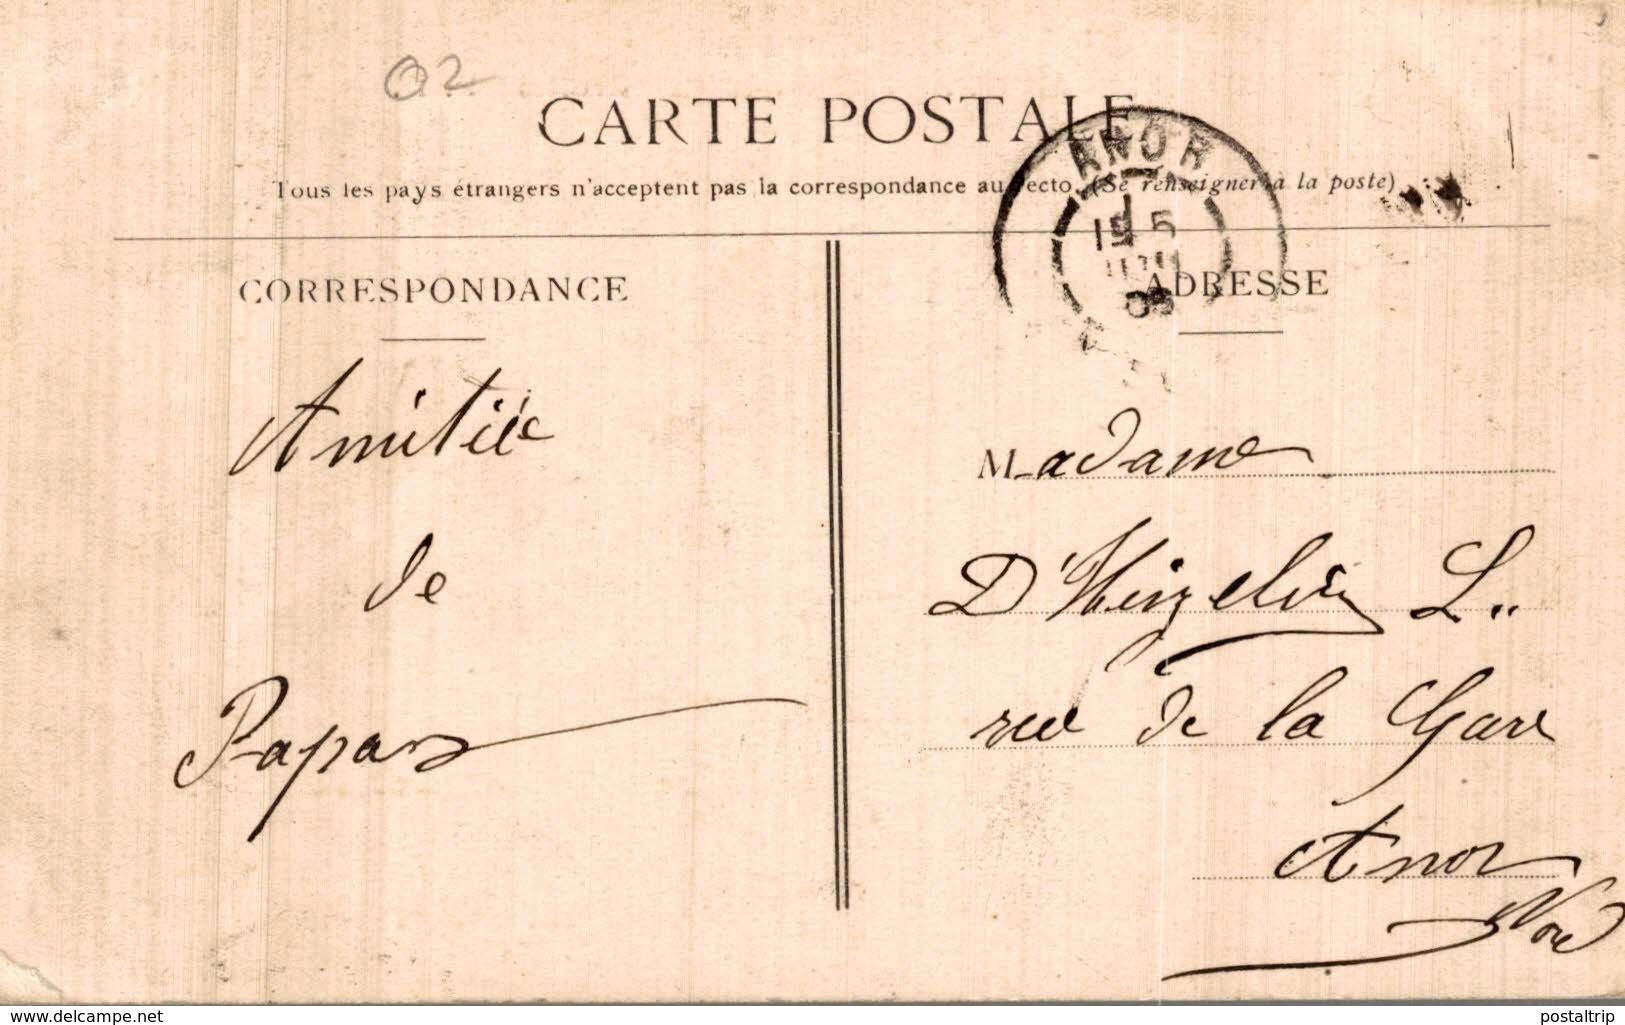 02
CARTE POSTALE
Tous les pays étrangers n'acceptent pas la correspondance au recto. (Se renseigner à la poste)
ANOR
CORRESPONDANCE
Amitiée
de
Papa
ADRESSE
Madame
L..
rue de la Gare
Anor
Nord
www.delcampe.net
postaltrip